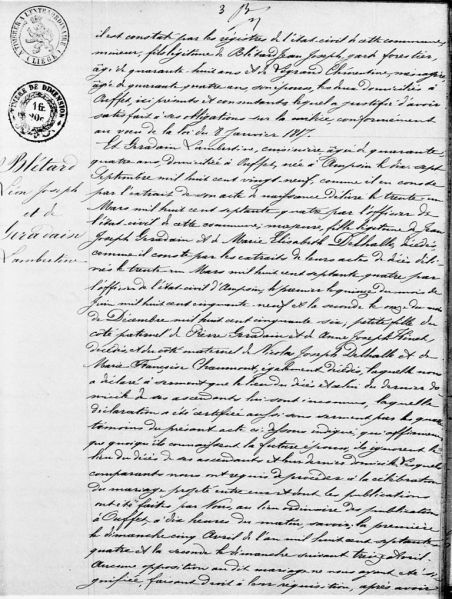 3
il est constaté par les registres de l'état civil de cette commune,
mineur, fils légitime de Blétard Jean Joseph garde forestier
âgé de quarante huit ans et de Legrand Clémentine, ménagère
âgée de quarante quatre ans, son épouse, les deux domiciliés à
Ouffet, ici présents et consentants lequel a justifié d'avoir
satisfait à ses obligations sur la milice, conformément
au vœu de la loi du 8 janvier 1817.
Et Gradain Lambertine, cuisinière, âgée de quarante
quatre ans domiciliée à Ouffet, née à Ampsin le dix sept
Septembre mil huit cent vingt neuf, comme il en conste
par l'extrait de son acte de naissance délivré le trente un
Mars mil huit cent septante quatre par l'officier de
l'état civil de cette commune; majeure, fille légitime de Jean
Joseph Gradain et de Marie Elisabeth Delhalle décédés
comme il conste par les extraits de leurs actes de décès déli-
vrés le trente un Mars mil huit cent septante quatre par
l'officier de l'état civil d'Ampsin, le premier le quinze du mois de
Juin mil huit cent cinquante neuf et la seconde le onze du mois
de Décembre mil huit cent cinquante six; petite fille du
côté paternel de Pierre Gradain et de Anne Joseph
décédés et du côté maternel de Nicolas Joseph Delhalle et de
Marie Françoise Chaumont, également décédés, laquelle nous
a déclaré à serment que le lieu du décès et celui du dernier do-
micile de ses ascendants lui sont inconnus, laquelle
déclaration a été certifiée aussi sous serment par les quatre
témoins du présent acte ci-dessous indiqués, qui affirment
que quoiqu'ils connaissent la future épouse, ils ignorent le
lieu du décès de ses ascendants et leur dernier domicile. Lesquels
comparants nous ont requis de procéder à la célébration
du mariage projeté entre eux et dont les publications
ont été faites par nous, au lieu ordinaire des publications
à Ouffet, à dix heures du matin, savoir, la première
le dimanche cinq Avril de l'an mil huit cent septante
quatre et la seconde le dimanche suivant treize Avril.
Aucune opposition au dit mariage ne nous ayant été si-
gnifiée, faisant droit à leur réquisition, après avoir
TIMBRE A L'EXTRAORDINAIRE
LIEGE
TIMBRE DE DIMENSION
Blétard
Léon Joseph
et de
Gradain
Lambertine